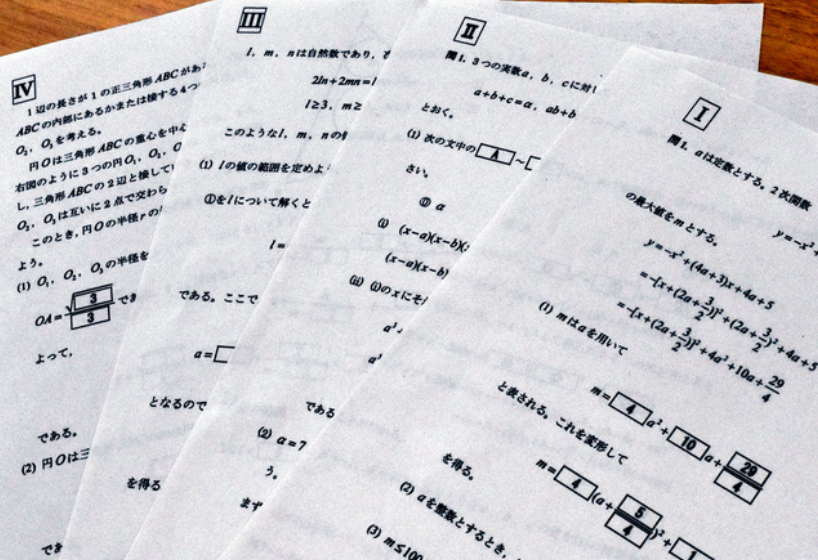 IV
1辺の長さが1の正三角形ABCがあ
ABCの内部にあるかまたは接する4つ
O₂, O₃を考える。
円Oは三角形ABCの重心を中心
右図のように3つの円O₁, O₂, O
し、三角形ABCの2辺と接して
O₂, O₃は互いに2点で交わら
このとき、円Oの半径rの
よう。
(1) O₁, O₂, O₃の半径を
OA=√3/3 でき
よって,
である。
(2) 円Oは三
でき
III
l, m, nは自然数であり,
2ln+2mn=l
l≥3, m≥
このようなl, m, nの
(1) lの値の範囲を定めよ
①をlについて解くと
l=
である。ここで
a=
となるので
を得る
II
問1. 3つの実数a, b, cに対し
a+b+c=α, ab+b
とおく。
(1) 次の文中の A ~
さい。
① α
(i) (x-a)(x-b)(
(x-a)(x-b)
(ii) (i)のxにそ
a³
a³
である
(2) α=7
う。
まず
I
問1. aは定数とする。2次関数
y=-x²+
の最大値をmとする。
y=-x²+(4a+3)x+4a+5
=-[x+(2a+3/2)]²+(2a+3/2)²+4a+5
=-[x+(2a+3/2)]²+4a²+10a+29/4
(1) mはaを用いて
m=4a²+10a+29/4
と表される。これを変形して
m=4(a+5/4)²+1
を得る。
(2) aを整数とするとき,
(3) m≤100